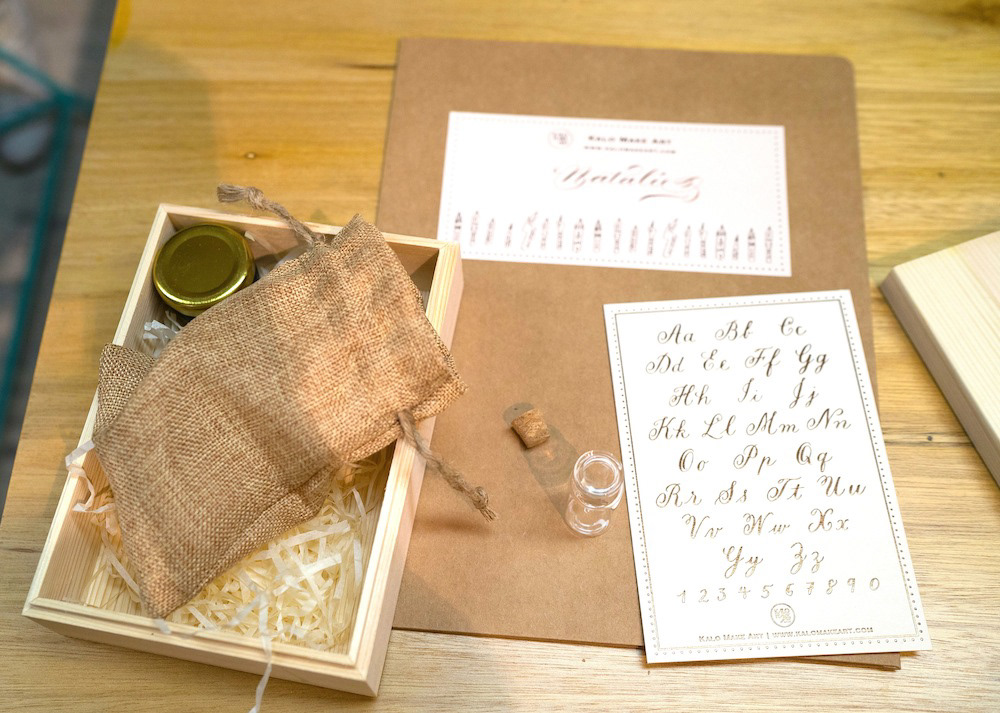 KALO MAKE ART
WWW.KALOMAKEART.COM
Natalie
Aa Bb Cc
Dd Ee Ff Gg
Hh Ii Jj
Kk Ll Mm Nn
Oo Pp Qq
Rr Ss Tt Uu
Vv Ww Xx
Yy Zz
1 2 3 4 5 6 7 8 9 0
KALO MAKE ART | WWW.KALOMAKEART.COM